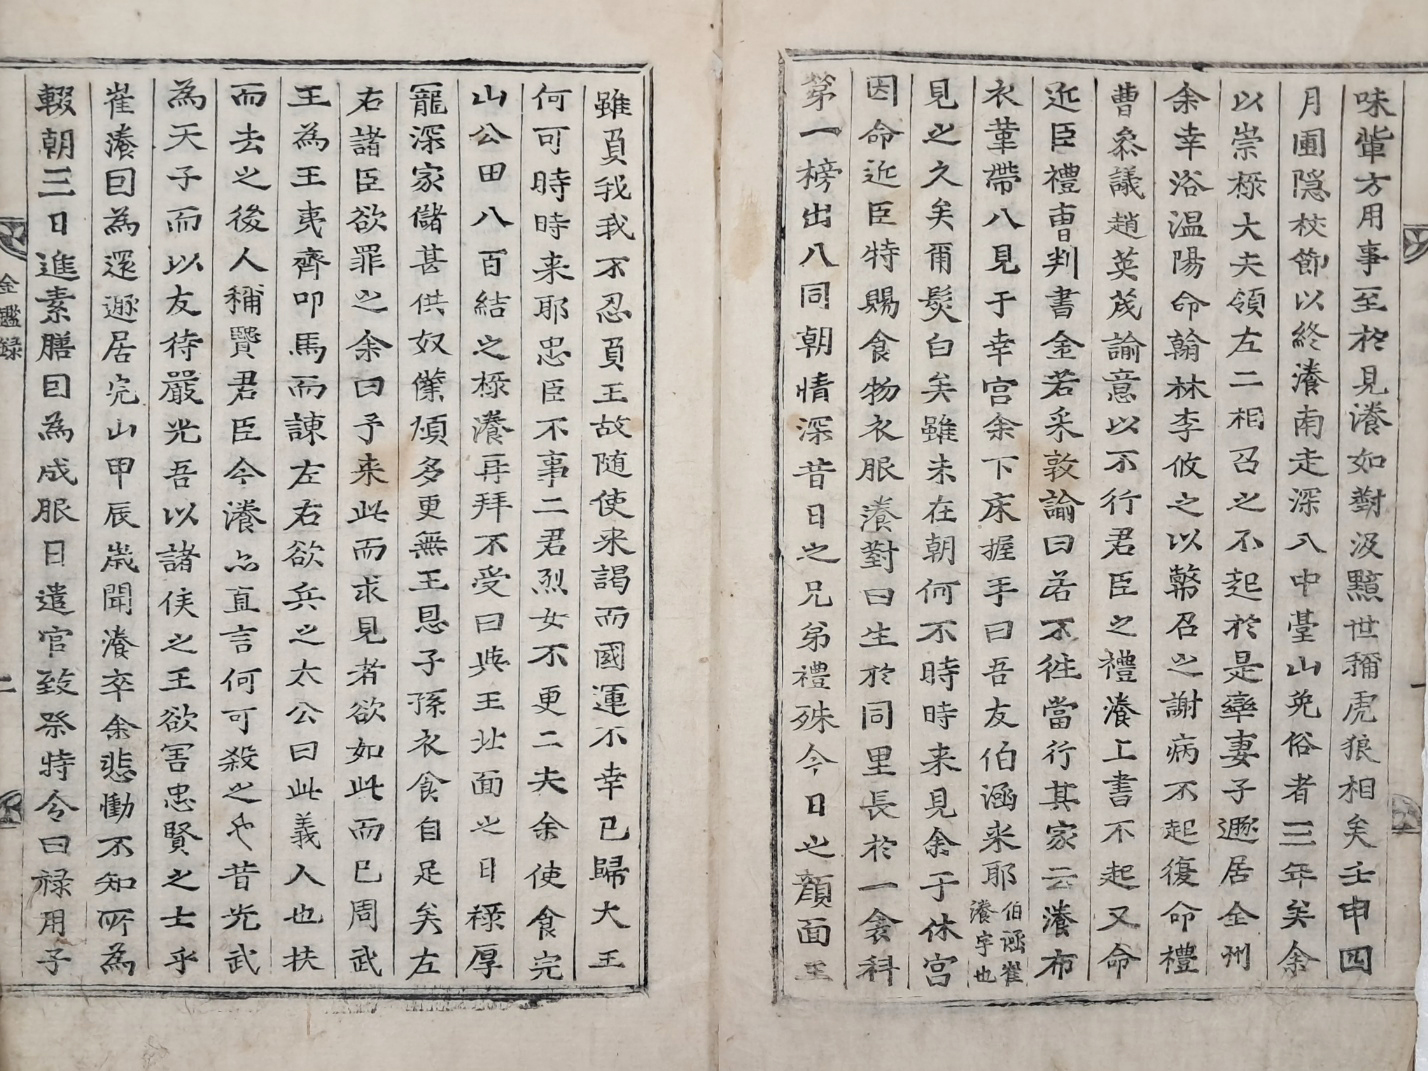 味軰方用事至於見瀁如對汲黯世稱虎狼相矣壬申四
月圃隱校節以終瀁南走深入中臺山免俗者三年矣余
以崇祿大夫領左二相召之不起於是率妻子遯居全州
余幸浴溫陽命翰林李攸之以幣召之謝病不起復命禮
曹叅議趙英茂諭意以不行君臣之禮瀁上書不起又命
近臣禮曹判書金若采敦諭曰若不徃當行其家云瀁布
衣革帶入見于幸宮余下床握手曰吾友伯涵来耶伯涵崔瀁字也
見之久矣爾髮白矣雖未在朝何不時時来見余于休宮
因命近臣特賜食物衣服瀁對曰生於同里長於一裏科
第一榜出入同朝情深昔日之兄弟禮殊今日之顏面王
雖負我我不忍負王故随使来謁而國運不幸已歸大王
何可時時来耶忠臣不事二君烈女不更二夫余使食完
山公田八百結之祿瀁再拜不受曰與王北面之日祿厚
寵深家儲甚供奴僕頗多更無王恩子孫衣食自足矣左
右諸臣欲罪之余曰予来此而求見者欲如此而已周武
王為王夷齊叩馬而諫左右欲兵之太公曰此義人也扶
而去之後人稱賢君臣今瀁亦直言何可殺之也昔光武
為天子而以友待嚴光吾以諸侯之王欲害忠賢之士乎
崔瀁因為還遯居完山甲辰歲聞瀁卒余悲慟不知所為
輟朝三日進素膳因為成服日遣官致祭特令曰祿用子
金鑑錄
二